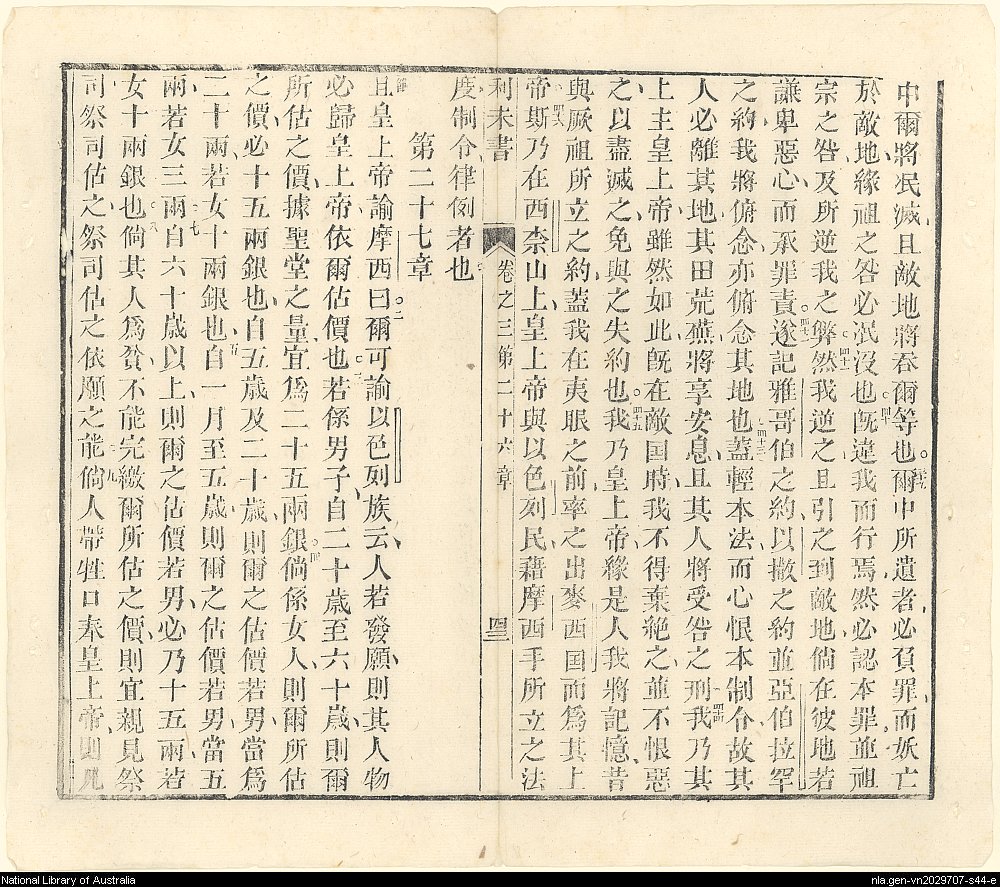 中爾將氓滅且敵地將吞爾等也爾中所遺者必負罪而妖亡
於敵地緣祖之咎必泯沒也旣違我而行焉然必認本罪並祖
宗之咎及所逆我之弊然我逆之且引之到敵地倘在彼地若
謙卑惡心而承罪責遂記雅哥伯之約以撒之約並亞伯拉罕
之約我將俯念亦俯念其地也蓋輕本法而心恨本制令故其
人必離其地其田荒蕪將享安息且其人將受咎之刑我乃其
上主皇上帝雖然如此旣在敵国時我不得棄絶之並不恨惡
之以盡滅之免與之失約也我乃皇上帝緣是人我將記憶昔
與厥祖所立之約蓋我在夷眼之前率之出麥西国而爲其上
帝斯乃在西柰山上皇上帝與以色列民藉摩西手所立之法
利未書 卷之三第二十六章 四三
度制令律例者也
第二十七章
且皇上帝諭摩西曰爾可諭以色列族云人若發願則其人物
必歸皇上帝依爾估價也若係男子自二十歲至六十歲則爾
所估之價據聖堂之量宜爲二十五兩銀倘係女人則爾所估
之價必十五兩銀也自五歲及二十歲則爾之估價若男當爲
二十兩若女十兩銀也自一月至五歲則爾之估價若男當五
兩若女三兩自六十歲以上則爾之估價若男必乃十五兩若
女十兩銀也倘其人爲貧不能完繳爾所估之價則宜親見祭
司祭司估之祭司估之依願之能倘人帶牲口奉皇上帝則凡
National Library of Australia
nla.gen-vn2029707-s44-e